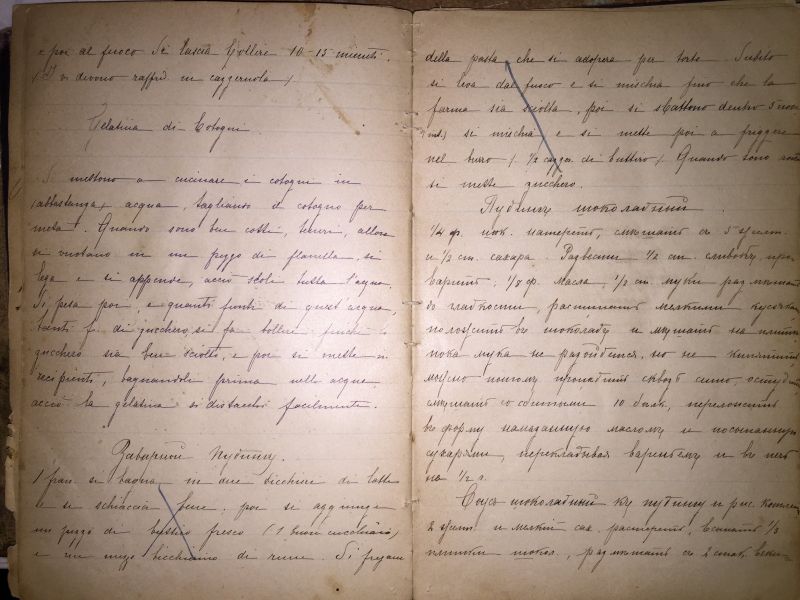 e poi al fuoco si lascia bollire 10-15 minuti.
( vi devono raffred. in cazzeruola )
Gelatina di Cotogni
Si mettono a cucinare i cotogni in
(abbastanza) acqua, tagliando il cotogno per
metà. Quando sono ben cotti, teneri, allora
si vuotano in un pezzo di flanella, si
lega e si appende, acciò scoli tutta l'acqua.
Si pesa poi, e quanti funti di quest'acqua,
tanti f. di zucchero, si fa bollire finchè lo
zucchero sia bene sciolto, e poi si mette in
recipienti, bagnandoli prima nell' acqua
acciò la gelatina si distacchi facilmente.
Заварной пудингъ.
1 fran. si bagna in due bicchieri di latte
e si schiaccia bene, poi si aggiunge
un pezzo di butirro fresco (1 buon cucchiaio)
e un mezzo bicchiere di rum. Si
della pasta che si adopera per torte. Subito
si leva dal fuoco e si mischia fino che la
farina sia sciolta, poi si sbattono dentro 5 uova
si mischia e si mette poi a friggere
nel burro ( 1/2 di butirro ) Quando sono
si mette zucchero.
Пудингъ шоколадный.
1/4 ф. шок. натереть, смѣшать съ 5 желт.
и 1/2 ст. сахара. Развести 1/2 ст. сливокъ,
варить; 1/8 ф. масла, 1/2 ст. муки размѣшать
до гладкости, распустить мелкими кусочками
положить въ шоколадъ и мѣшать на плитѣ
пока мука не разойдется, но не кипятить
потомъ протереть сквозь сито, остудить
смѣшать со сбитыми 10 бѣлк., переложить
въ форму намазанную масломъ и посыпанную
сухарями, перекладывая вареньемъ и въ печь
на 1/2 ч.
Соусъ шоколадный къ пудингу и рис.
2 желт. и мелкій сах. растереть, всыпать 1/3
плитки шокол., размѣшать съ 2 стак.